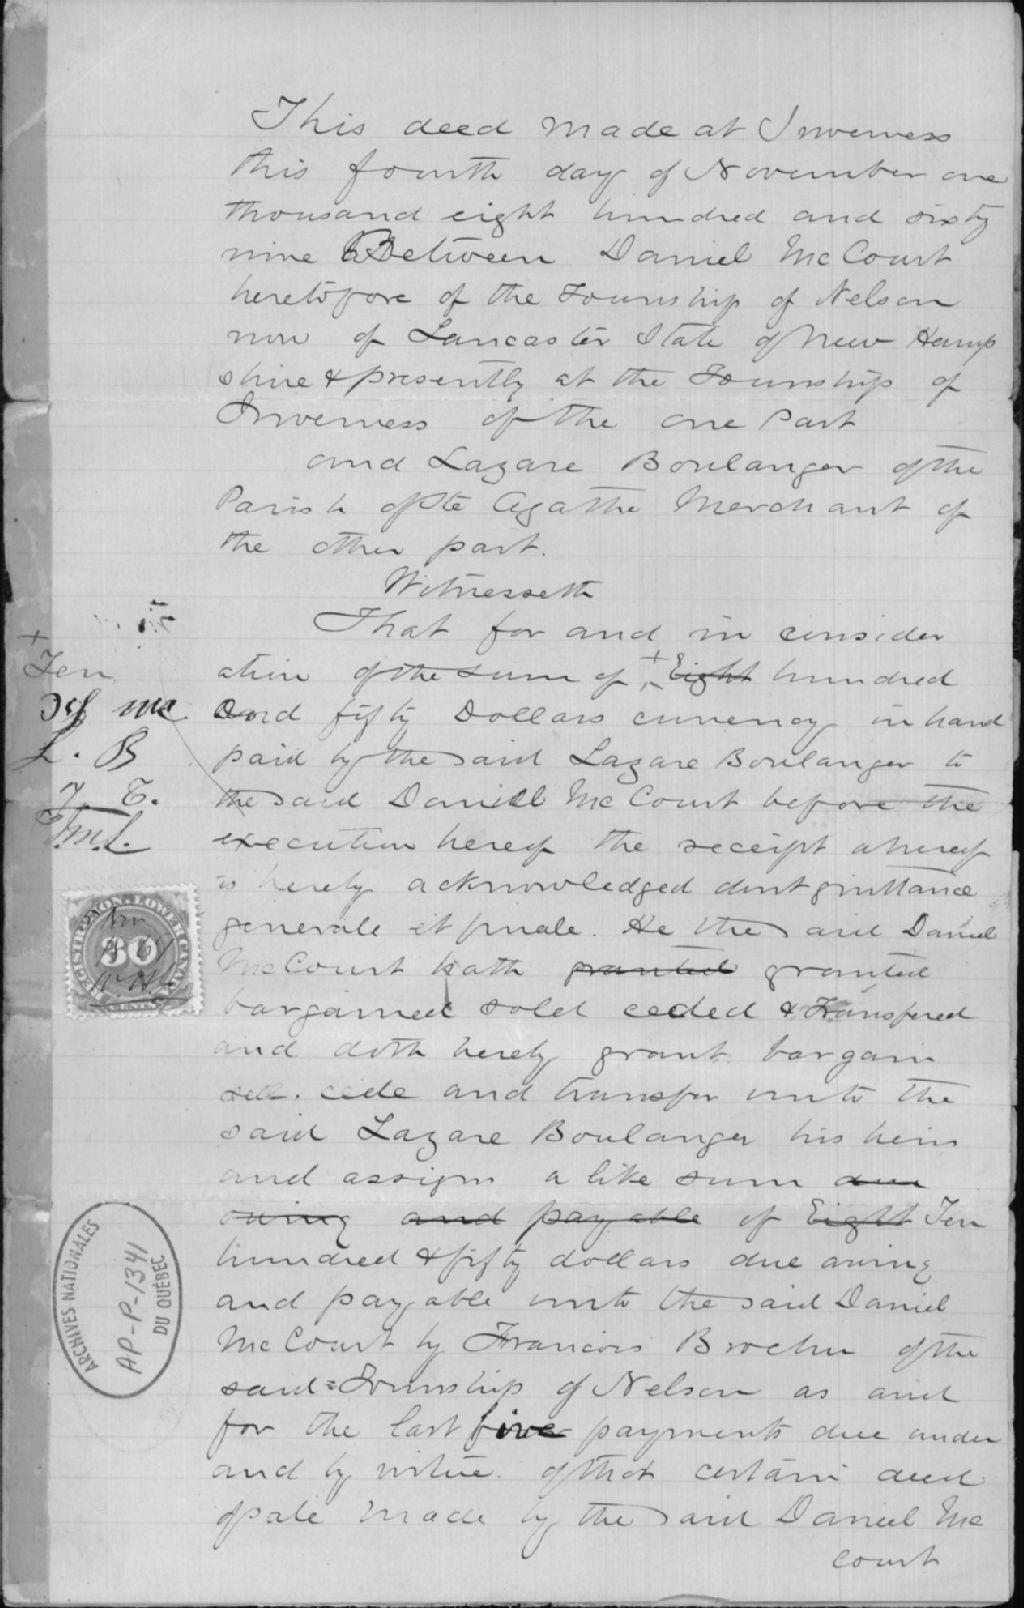 This deed made at Inverness
this fourth day of November one
thousand eight hundred and sixty
nine Between Daniel McCourt
heretofore of the Township of Nelson
now of Lancaster State of New Hamp
shire & presently at the Township of
Inverness of the one Part
and Lazare Boulanger of the
Parish of Ste Agathe Merchant of
the other part.
Witnesseth
That for and in consider
ation of the sum of + Eight hundred
and fifty Dollars currency in hand
paid by the said Lazare Boulanger to
the said Daniel McCourt before the
execution hereof the receipt whereof
is hereby acknowledged dont quittance
generale et finale. He the said Daniel
McCourt hath granted granted
bargained sold ceded & Transfered
and doth hereby grant bargain
sell. cede and transfer unto the
said Lazare Boulanger his heirs
and assigns a like sum due
owing and payable of Eight Ten
hundred & fifty dollars due owing
and payable unto the said Daniel
McCourt by Francois Brochu of the
said Township of Nelson as and
for the last five payments due under
and by virtue. of that certain deed
of sale made by the said Daniel Mc
court
+
Ten
Mc
L. B
T. C.
REGISTRATION. LOWER CANADA
30
CENTS
ARCHIVES NATIONALES
AP-P-1341
DU QUÉBEC